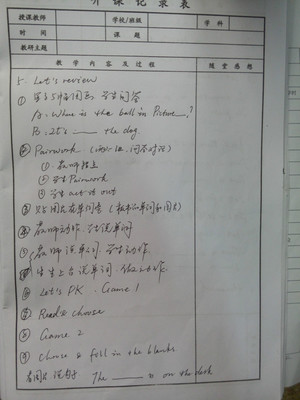 听课记录表
授课教师 学校/班级 学科
时间 课题
教研主题
教学内容及过程 随堂感想
5. Let's review
① 出示5幅图画 学生问答
A: Where is the ball in Picture_?
B: It's ___ the dog.
② Pairwork (两人一组,问答对话)
①
② 学生Pairwork
③ 学生act it out
③
④ 教师动作,学生说单词
⑤ 教师说单词,学生动作
学生上台说单词,做动作
⑥ Let's PK. Game 1
⑦ Read & choose
⑧ Game 2
⑨ Choose & fill in the blanks
看图片说句子 The ______ is on the desk